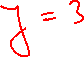 y = 3